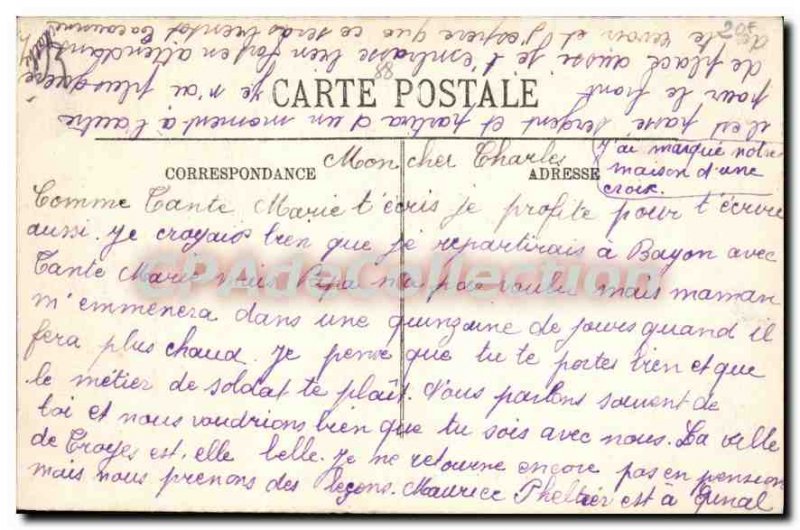 CARTE POSTALE
CORRESPONDANCE
ADRESSE
J'ai marqué notre
maison d'une
croix.
Mon cher Charles
Comme Tante Marie t'écris je profite pour t'écrire
aussi. Je croyais bien que je repartirais à Bayon avec
Tante Marie mais Papa n'a pas voulu mais maman
m'emmènera dans une quinzaine de jours quand il
fera plus chaud. Je pense que tu te portes bien et que
le métier de soldat te plaît. Nous parlons souvent de
toi et nous voudrions bien que tu sois avec nous. La ville
de Troyes est, elle belle. Je ne retourne encore pas en pension
mais nous prenons des leçons. Maurice est à Epinal
il est passé sergent et partira d'un moment à l'autre
pour le front. Je n'ai plus guère
de place aussi je t'embrasse bien fort en attendant
de te revoir et j'espère que ce sera bientôt
CPAdeCollection
20F
88